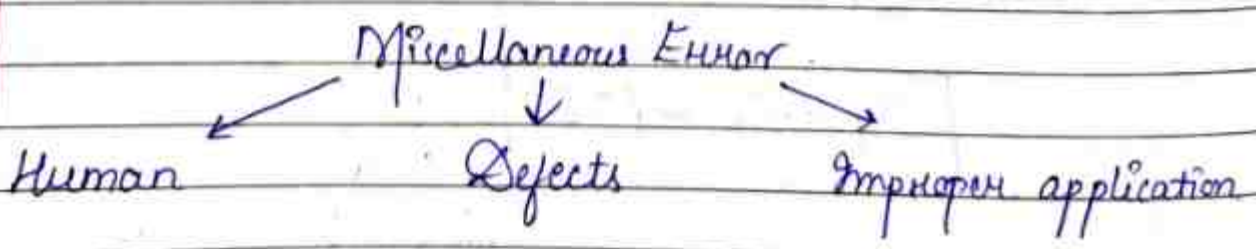 Miscellaneous Error
Human Defects Improper application